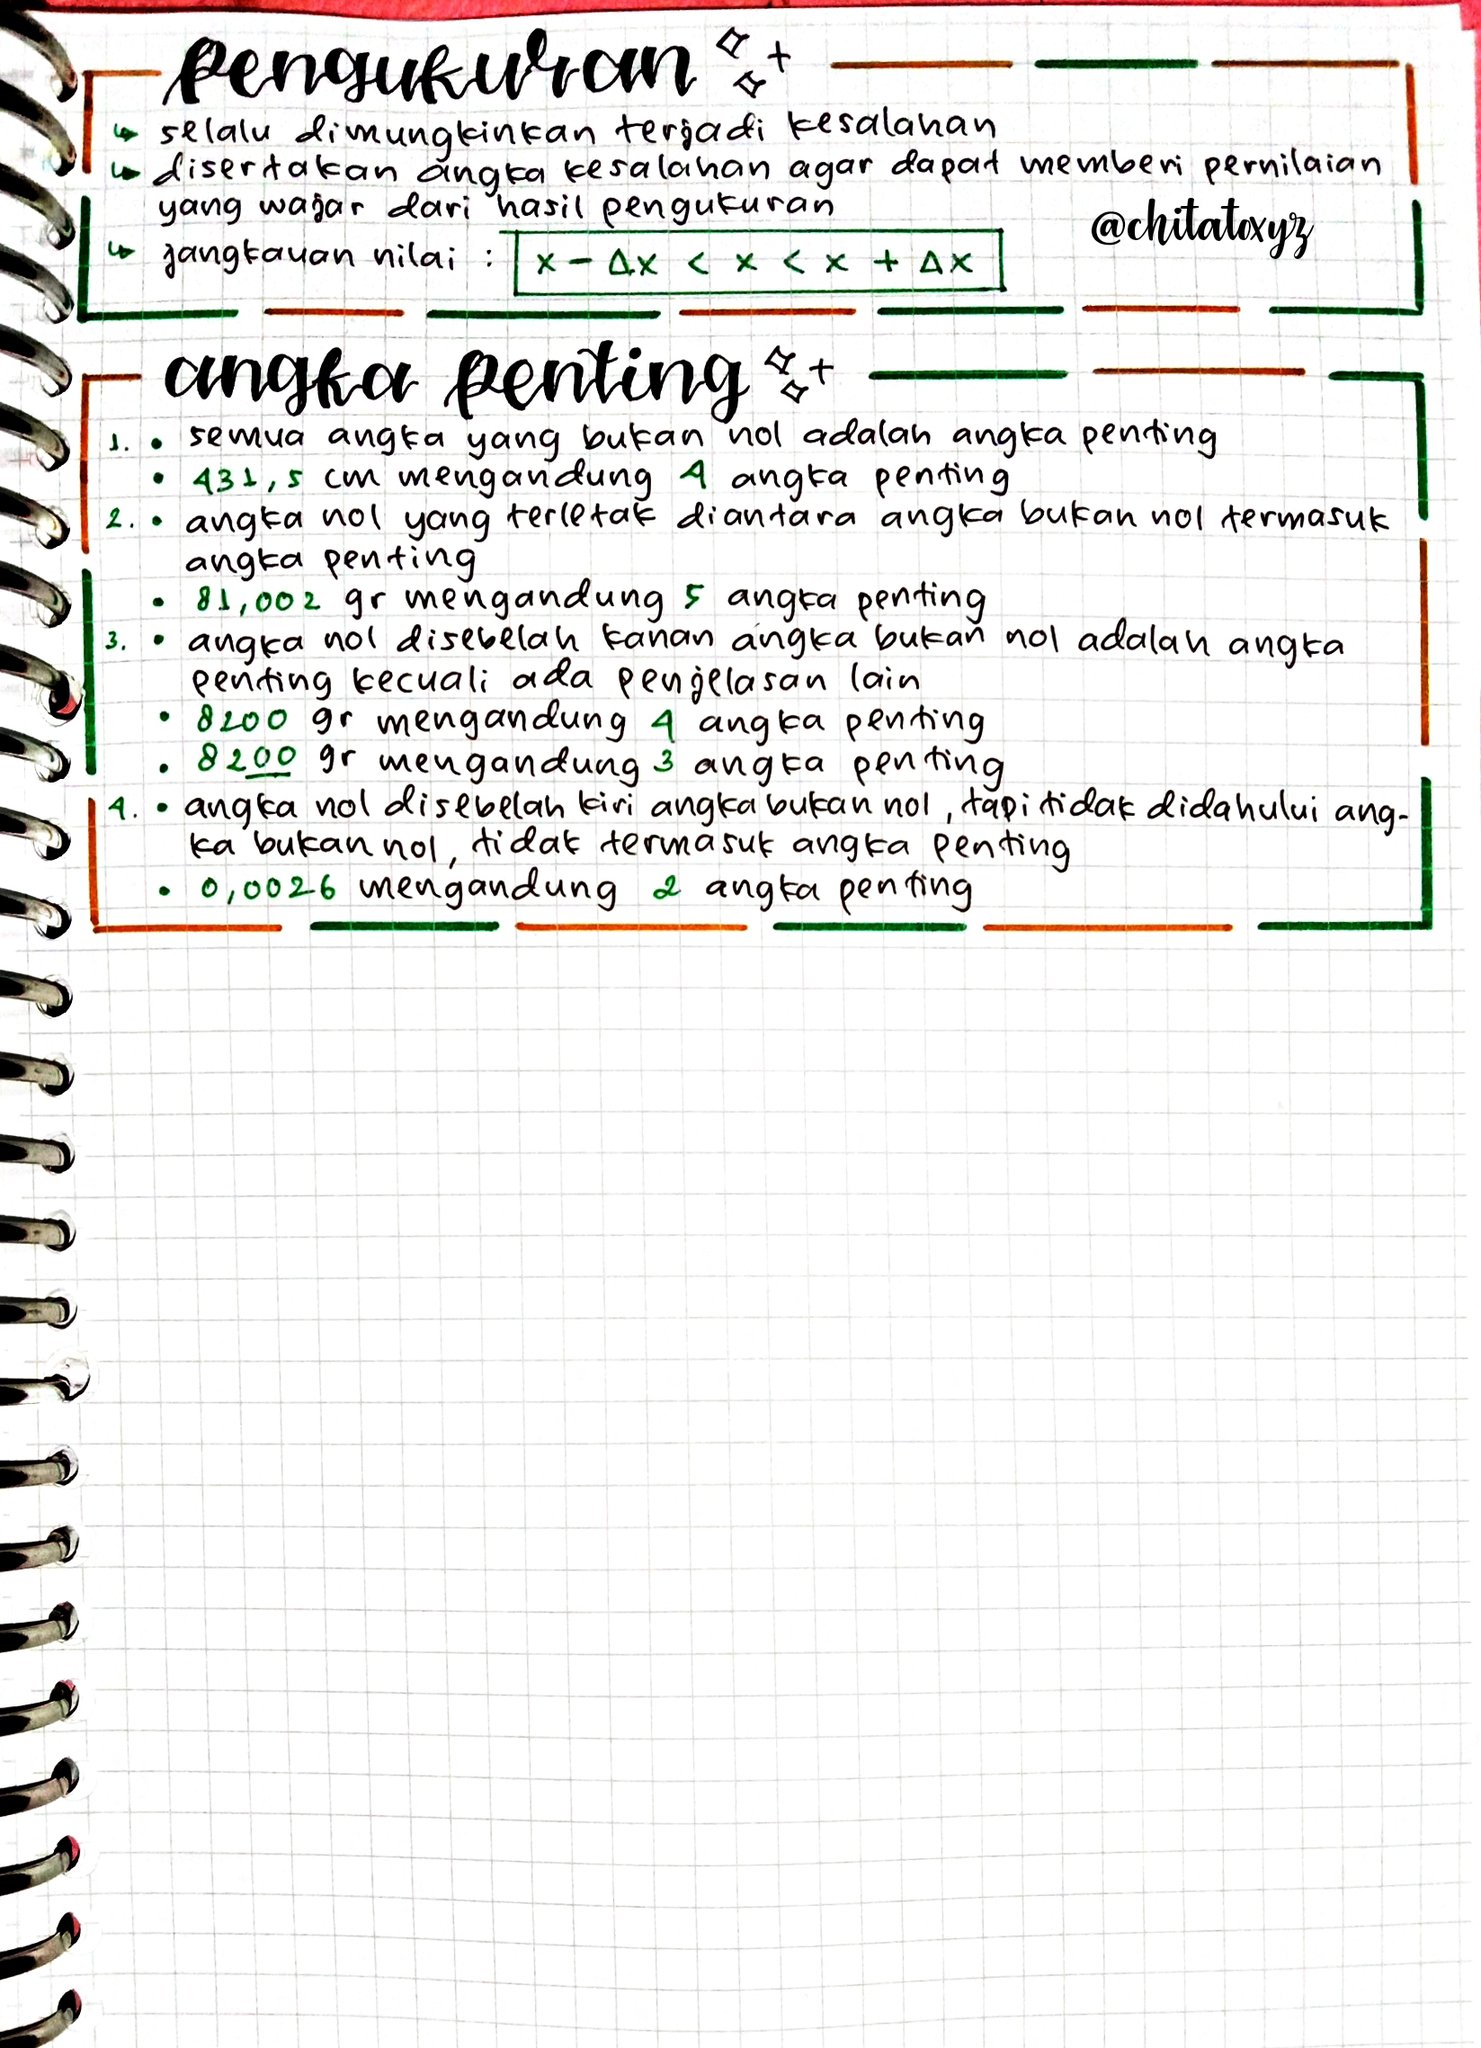 pengukuran
↳ selalu dimungkinkan terjadi kesalahan
↳ disertakan angka kesalahan agar dapat memberi pernilaian
yang wajar dari hasil pengukuran
@chitatoxyz
↳ jangkauan nilai : x - Δx < x < x + Δx
angka penting
1. • semua angka yang bukan nol adalah angka penting
• 431,5 cm mengandung 4 angka penting
2. • angka nol yang terletak diantara angka bukan nol termasuk
angka penting
• 81,002 gr mengandung 5 angka penting
3. • angka nol disebelah kanan angka bukan nol adalah angka
penting kecuali ada penjelasan lain
• 8200 gr mengandung 4 angka penting
• 8200 gr mengandung 3 angka penting
4. • angka nol disebelah kiri angka bukan nol, tapi tidak didahului ang-
ka bukan nol, tidak termasuk angka penting
• 0,0026 mengandung 2 angka penting